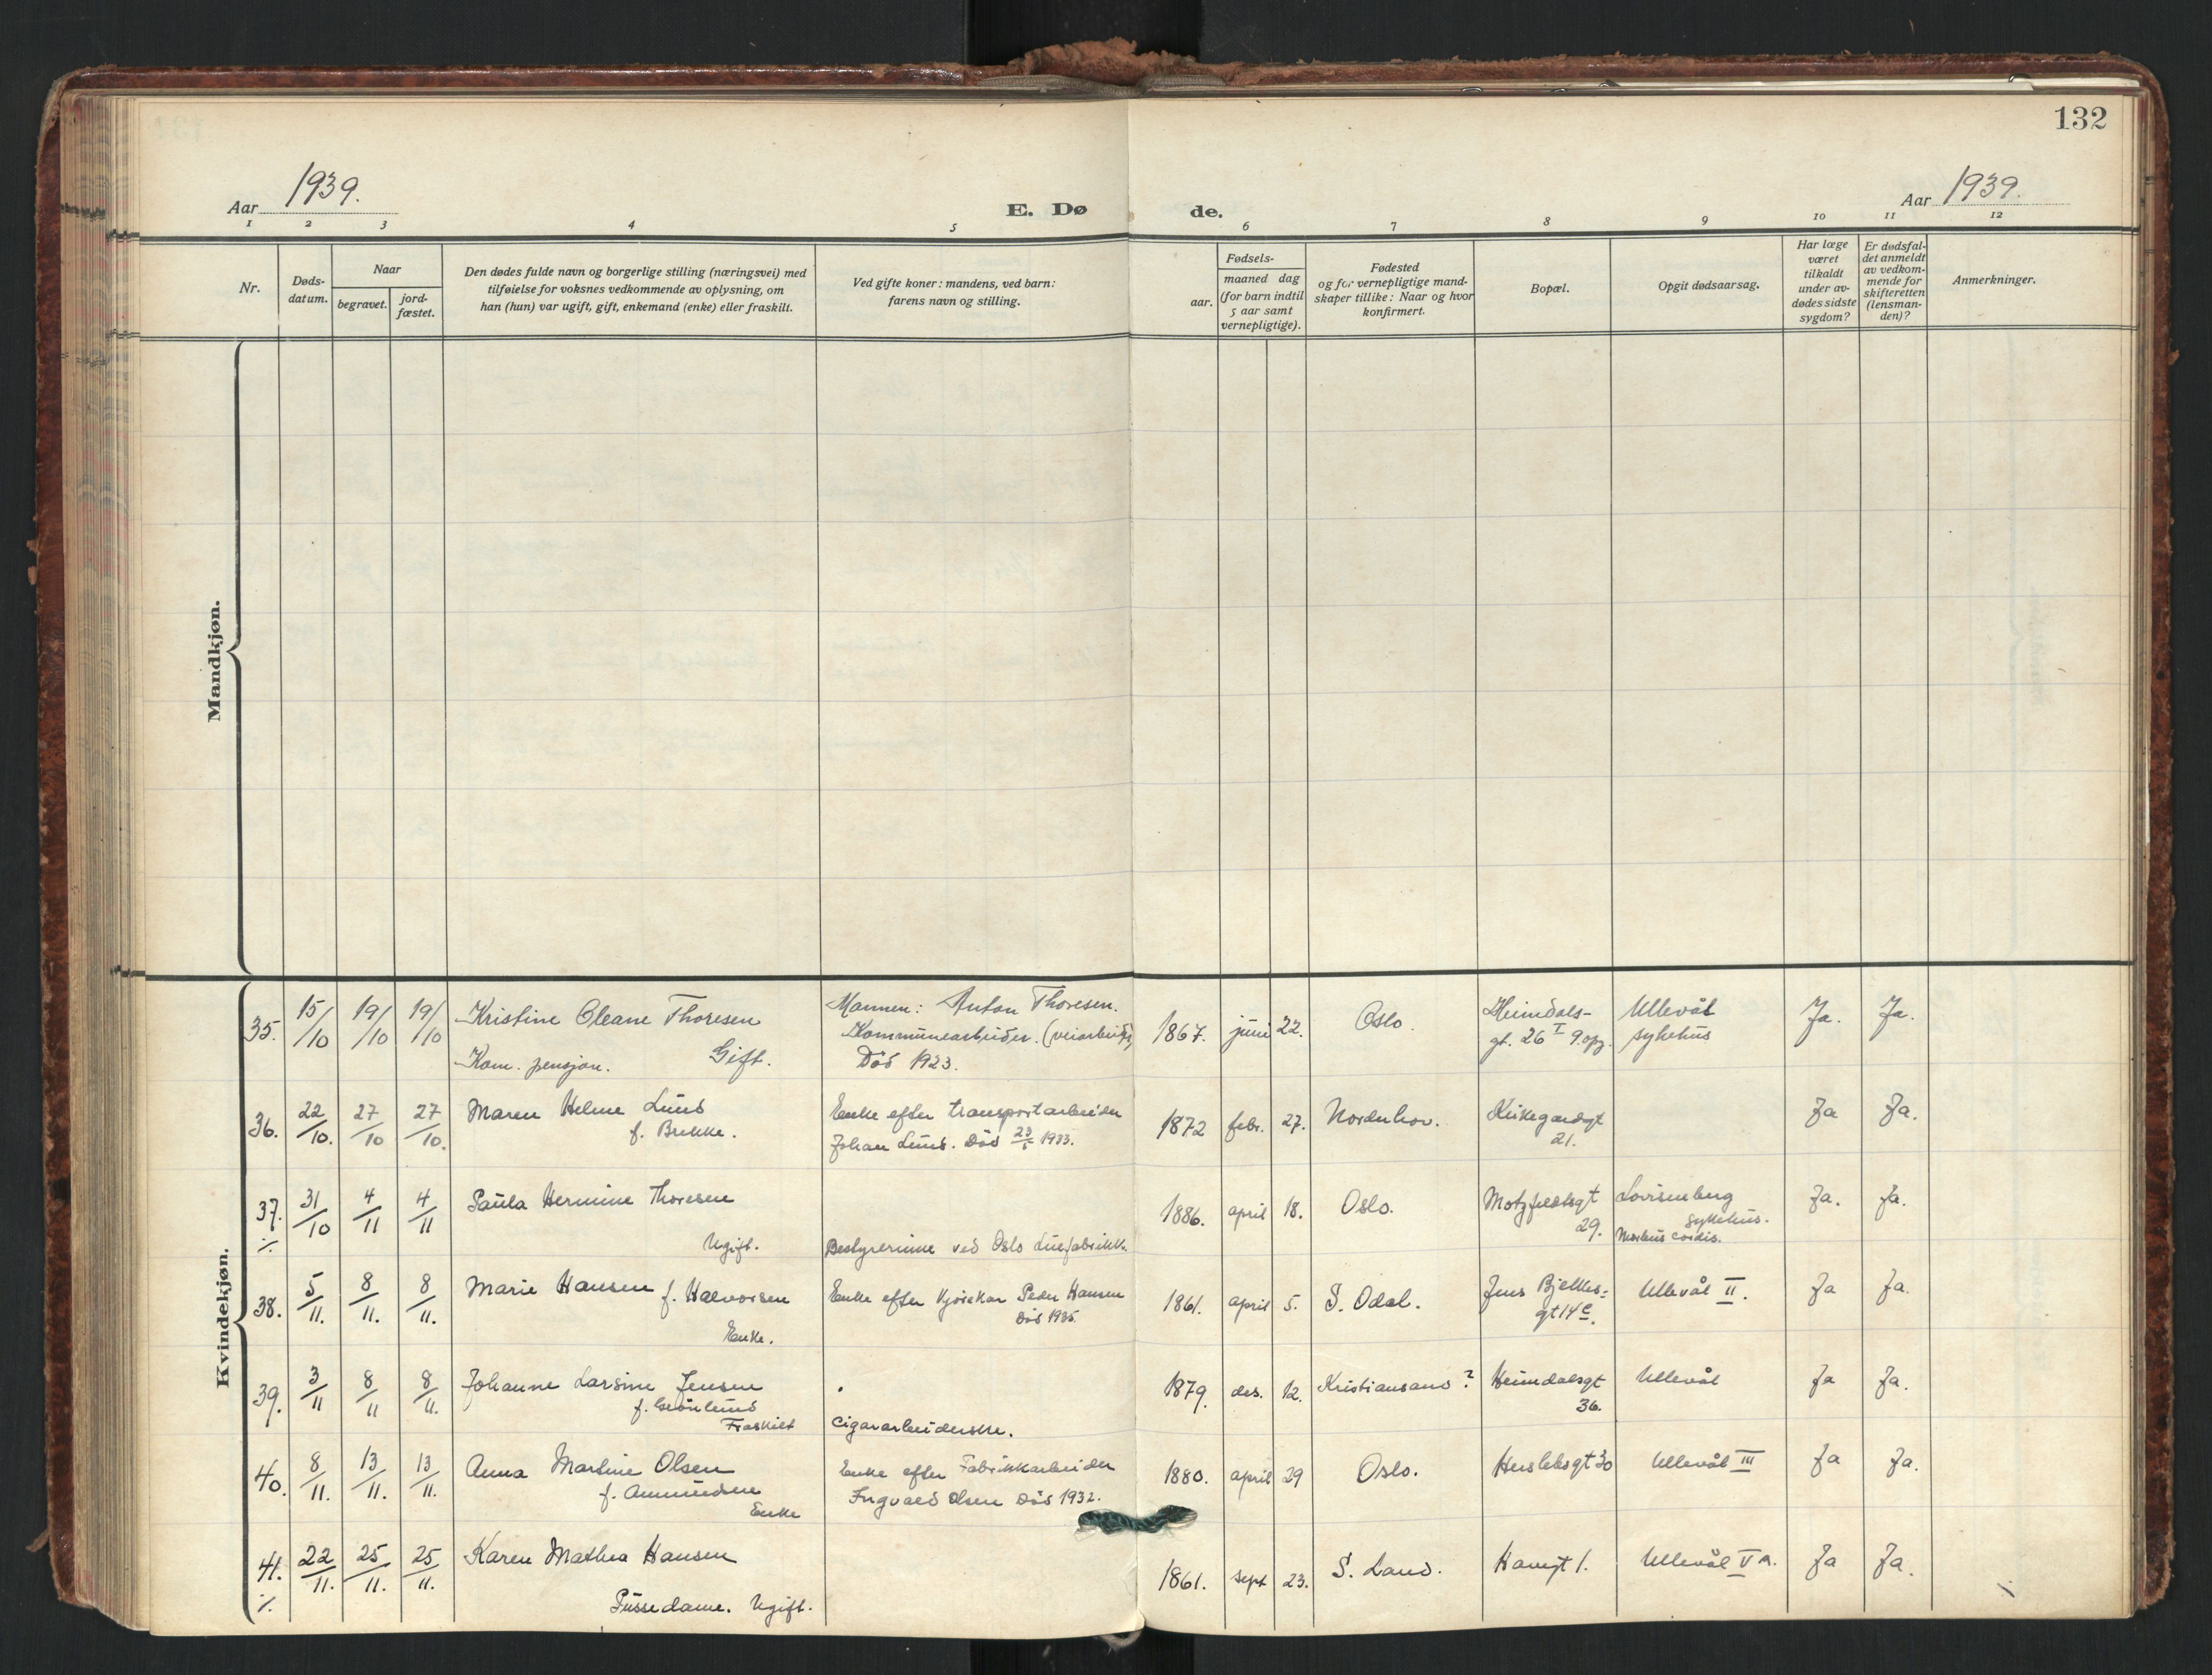 132
Aar 1939.
E. Dø de.
Aar 1939.
1 2 3 4 5 6 7 8 9 10 11 12
Nr.
Døds-
datum.
Naar
begravet.
jord-
fæstet.
Den dødes fulde navn og borgerlige stilling (næringsvei) med
tilføielse for voksnes vedkommende av oplysning, om
han (hun) var ugift, gift, enkemand (enke) eller fraskilt.
Ved gifte koner: mandens, ved barn:
farens navn og stilling.
Fødsels-
aar.
maaned dag
(for barn indtil
5 aar samt
vernepligtige).
Fødested
og for vernepligtige mand-
skaper tillike: Naar og hvor
konfirmert.
Bopæl.
Opgit dødsaarsag.
Har læge
været
tilkaldt
under av-
dødes sidste
sygdom?
Er dødsfal-
det anmeldt
av vedkom-
mende for
skifteretten
(lensman-
den)?
Anmerkninger.
Mandkjøn.
Kvindekjøn.
35. 15/10 19/10 19/10 Kristine Oleane Thoresen
Kom. pensjon. Gift.
Mannen: Anton Thoresen.
Kommunearbeider. (veiarbeider)
Död 1923.
1867. juni 22. Oslo.
Heimdals-
gt. 26 I 9.opg.
Ullevål
sykehus
Ja. Ja.
36. 22/10. 27/10 27/10. Maren Helene Lund
f. Brekke.
Enke efter transportarbeider
Johan Lund. Död 23/5 1933.
1872 febr. 27. Norderhov.
Kirkegardsgt
21.
Ja Ja.
37. 31/10 4/11 4/11 Paula Hermine Thoresen
Ugift.
Bestyrerinne ved Oslo Luefabrikk.
1886. april 18. Oslo.
Motzfeldtsgt
29.
Lovisenberg
sykehus.
Morbus cordis.
Ja. Ja.
38. 5/11. 8/11. 8/11. Marie Hansen f. Halvorsen
Enke.
Enke efter kjörekar Peder Hansen
Död 1935.
1861. april 5. S. Odal.
Jens Bjelkes-
gt 14 c.
Ullevål II.
Ja Ja.
39. 3/11 8/11 8/11. Johanne Larsine Jensen
f. Grönlund
Fraskilt
Cigararbeiderske.
1879. des. 12. Kristiansand?
Heimdalsgt
36.
Ullevål
Ja Ja.
40. 8/11. 13/11. 13/11. Anna Martine Olsen
f. Amundsen
Enke
Enke efter Fabrikkarbeider
Ingvald Olsen Död 1932.
1880. april 29 Oslo.
Herslebsgt 30
Ullevål III
Ja Ja.
41. 22/11. 25/11. 25/11. Karen Mathea Hansen
Pussedame. Ugift.
1861. sept 23. S. Land.
Ullevål V A.
Ja Ja.